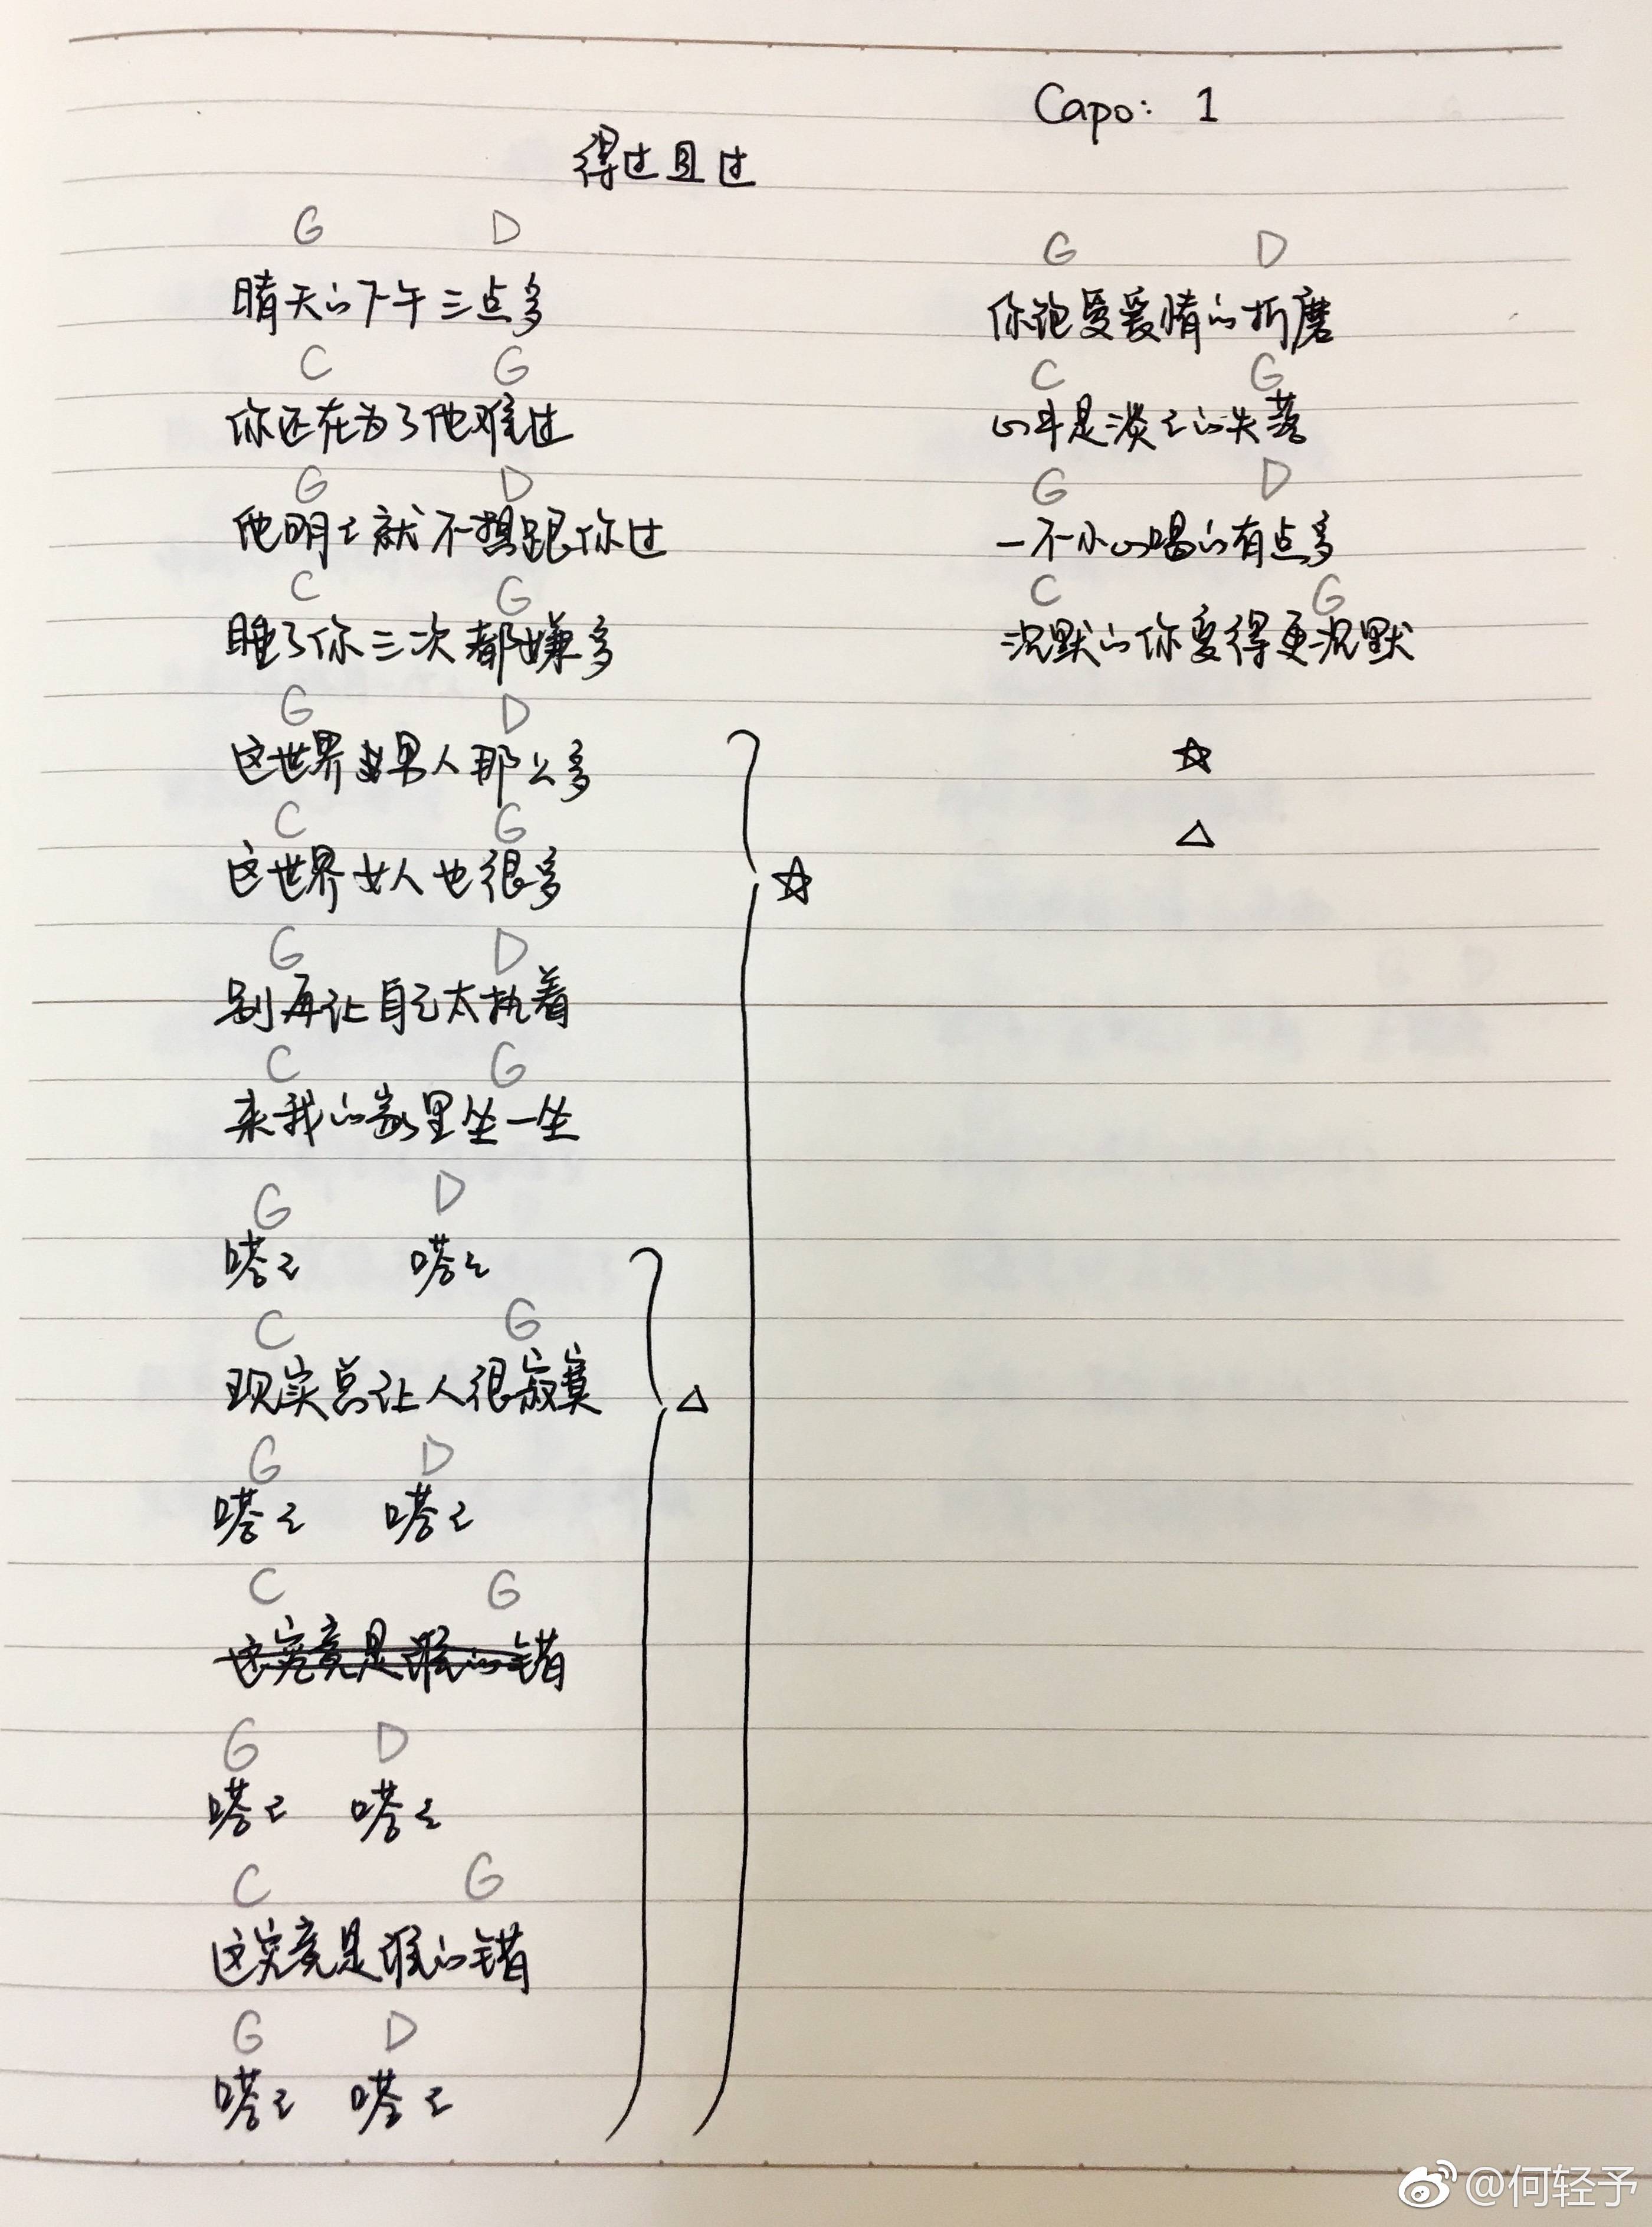 Capo: 1
得过且过
G D
晴天的下午三点多
C G
你还在为了他难过
G D
他明々就不想跟你过
C G
睡了你三次都嫌多
G D
这世界男人那么多
C G
这世界女人也很多
G D
别再让自己太执着
C G
来我的家里坐一坐
G D
嗒々 嗒々
C G
现实总让人很寂寞
G D
嗒々 嗒々
C G
这究竟是谁的错
G D
嗒々 嗒々
C G
这究竟是谁的错
G D
嗒々 嗒々
☆
△
G D
你饱受爱情的折磨
C G
心中是淡々的失落
G D
一不小心喝的有点多
C G
沉默的你变得更沉默
☆
△
@何轻予